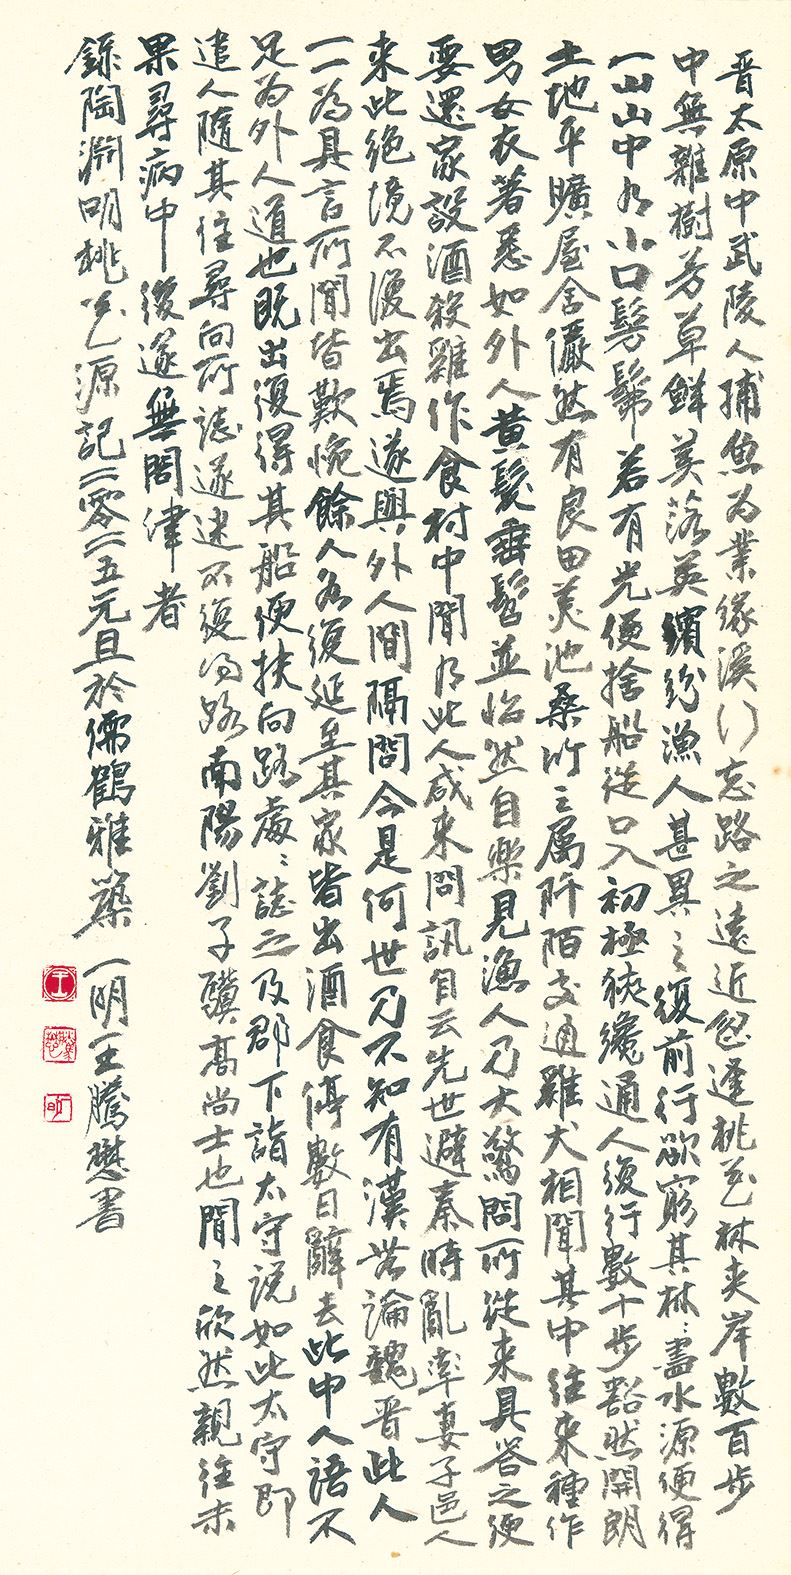 晋太原中武陵人捕魚为業緣溪行忘路之遠近忽逢桃花林夹岸數百步
中無雜樹芳草鲜美落英繽紛漁人甚異之復前行欲窮其林〻盡水源便得
一山山中有小口髣髴若有光便捨船從口入初極狹纔通人復行數十步豁然開朗
土地平曠屋舍儼然有良田美池桑竹之属阡陌交通雞犬相聞其中往来種作
男女衣著悉如外人黄髮垂髫並怡然自樂見漁人乃大驚問所從来具答之便
要還家設酒殺雞作食村中聞有此人咸来問訊自云先世避秦時亂率妻子邑人
来此绝境不復出焉遂與外人間隔問今是何世乃不知有漢無論魏晋此人
一一為具言所聞皆歎惋餘人各復延至其家皆出酒食停數日辭去此中人語不
足为外人道也既出復得其船便扶向路處〻誌之及郡下詣太守说如此太守即
遣人隨其往尋向所誌遂迷不復得路南陽劉子驥高尚士也聞之欣然親往未
果尋病中後遂無問津者
錄陶渊明桃花源記二零二五元旦於儒鶴雅築一明王騰懋書
王
騰懋
一明